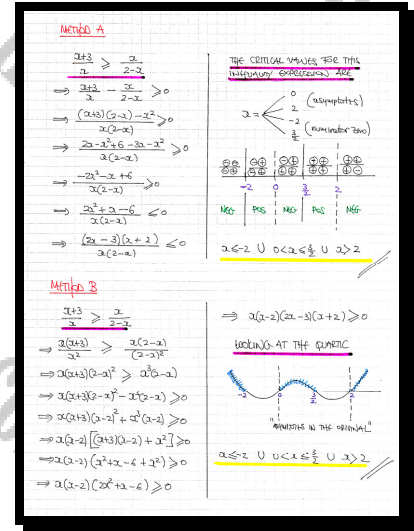 METHOD A
x+3/x ≥ x/2-x
⇒ x+3/x - x/2-x ≥ 0
⇒ (x+3)(2-x)-x²/x(2-x) ≥ 0
⇒ 2x-x²+6-3x-x²/x(2-x) ≥ 0
⇒ -2x²-x+6/x(2-x) ≥ 0
⇒ 2x²+x-6/x(2-x) ≤ 0
⇒ (2x-3)(x+2)/x(2-x) ≤ 0
THE CRITICAL VALUES FOR THIS
INEQUALITY EXPRESSION ARE
x = 0 2 (asymptotes)
-2 3/2 (numerator zero)
-2 0 3/2 2
NEG POS NEG POS NEG
x≤-2 ∪ 0<x≤3/2 ∪ x>2
METHOD B
x+3/x ≥ x/2-x
⇒ x(x+3)/x² ≥ x(2-x)/(2-x)²
⇒ x(x+3)(2-x)² ≥ x³(2-x)
⇒ x(x+3)(2-x)² - x³(2-x) ≥ 0
⇒ x(x+3)(x-2)² + x³(x-2) ≥ 0
⇒ x(x-2)[(x+3)(x-2) + x²] ≥ 0
⇒ x(x-2)(x²+x-6+x²) ≥ 0
⇒ x(x-2)(2x²+x-6) ≥ 0
⇒ x(x-2)(2x-3)(x+2) ≥ 0
LOOKING AT THE QUARTIC
-2 0 3/2 2
"ASYMPTOTES IN THE ORIGINAL"
x≤-2 ∪ 0<x≤3/2 ∪ x>2